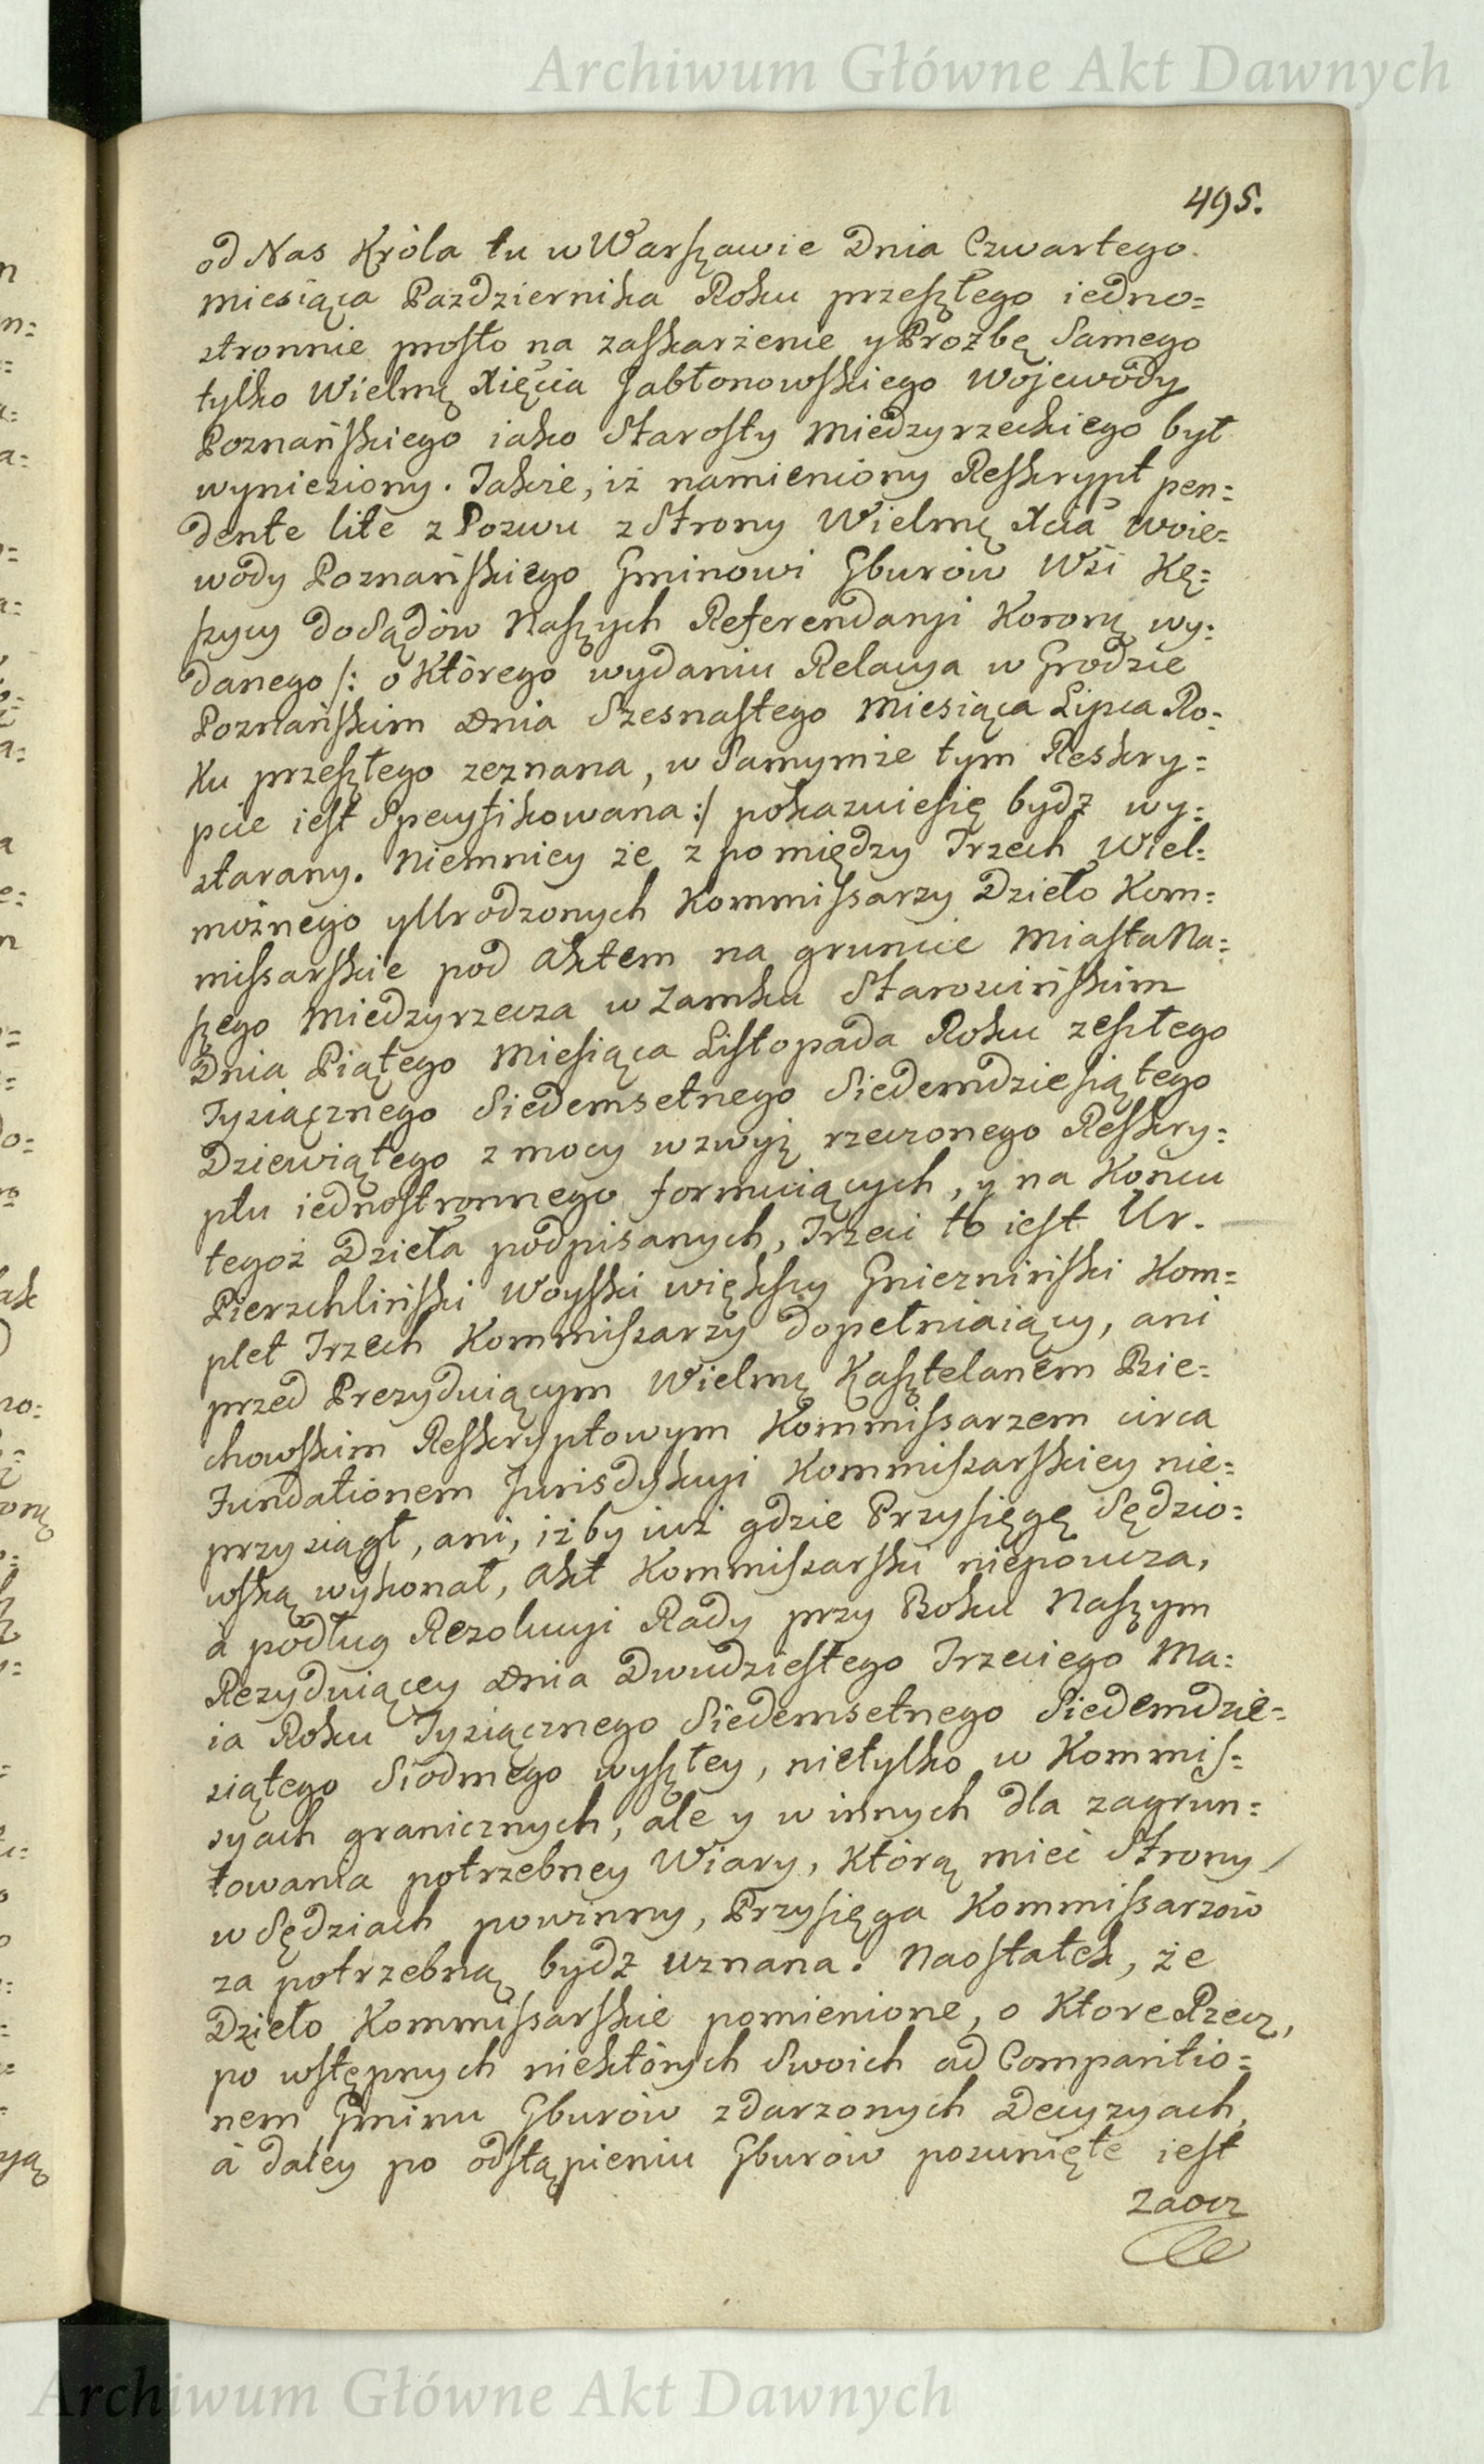 Archiwum Główne Akt Dawnych
495.
od Nas Króla tu w Warszawie Dnia Czwartego
Miesiąca Pazdziernika Roku przeszłego iedno=
stronnie prosto na zaskarżenie y Prozbę Samego
tylko Wielmę Xięcia Jabłonowskiego Wojewody
Poznańskiego iako Starosty Miedzyrzeckiego był
wyniesiony. Jakże, iż namieniony Reskrypt pen=
dente lite z Pozwu z Strony Wielmę Xcia Woie=
wody Poznańskiego Gminowi Gburów Wsi Kę=
szycy do Sądów Naszych Referendaryi Koronę wy=
danego /: o którego wydaniu Relacya w Grodzie
Poznańskim Dnia Szesnastego Miesiąca Lipca Ro=
ku przeszłego zeznana, w Samymże tym Reskry=
pcie iest Specyfikowana :/ pokazuiesię bydź wy=
starany. Niemniey że z pomiędzy Trzech Wiel=
możnego y Urodzonych Kommissarzy Dzieło Kom=
missarskie pod Aktem na gruncie Miasta Na=
szego Miedzyrzecza w Zamku Starościńskim
Dnia Piątego Miesiąca Listopada Roku zeszłego
Tysiącznego Siedemsetnego Siedemdziesiątego
Dziewiątego z mocy wzwyż rzeczonego Reskry=
ptu iednostronnego formuiących, y na Końcu
tegoż Dzieła podpisanych, Trzeci to iest Ur.
Pierzchliński Woyski większy Gniezniński Kom=
plet Trzech Kommissarzy dopełniaiący, ani
przed Prezyduiącym Wielmę Kasztelanem Bie=
chowskim Reskryptowym Kommissarzem circa
Fundationem Jurisdykcyi Kommissarskiey nie=
przysiągł, ani, iżby iuż gdzie Przysięgę Sędzio=
wską wykonał, Akt Kommissarski niepoucza,
a podług Rezolucyi Rady przy Boku Naszym
Rezyduiącey Dnia Dwudziestego Trzeciego Ma=
ia Roku Tysiącznego Siedemsetnego Siedemdzie=
siątego Siodmego wyszłey, nietylko w Kommis=
syach granicznych, ale y w innych dla zagrun=
towania potrzebney Wiary, którą mieć Strony
w Sędziach powinny, Przysięga Kommissarzów
za potrzebną bydź uznana. Naostatek, że
Dzieło Kommissarskie pomienione, o które Rzecz,
po wstępnych niektórych Swoich ad Comparitio=
nem Gminu Gburów zdarzonych Decyzyach,
a daley po odstąpieniu Gburów posunięte iest
zaocz
Archiwum Główne Akt Dawnych